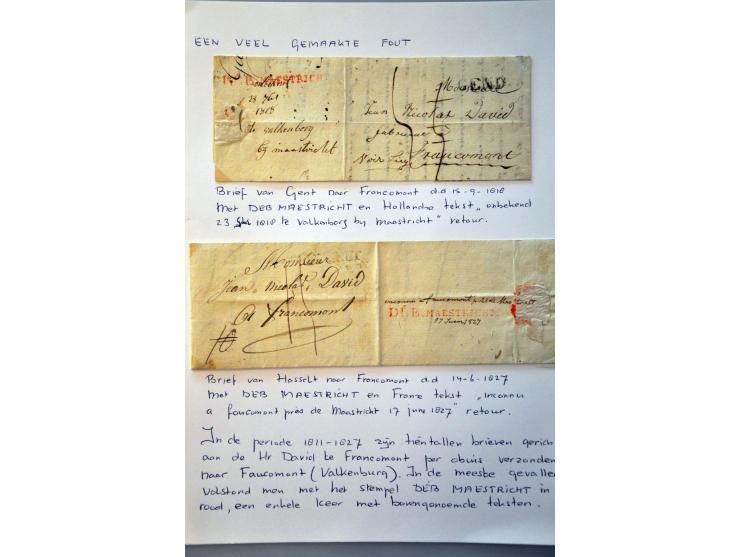 EEN VEEL GEMAAKTE FOUT
DEB MAESTRICHT
GEND
Monsieur
Jean Nicolas David
fabricant
1818
te valkenborg
by maastricht
Francomont
Brief van Gent naar Francomont d.d 18-9-1818
Met DEB MAESTRICHT en Hollandse tekst „onbekend
23 1818 te Valkenborg by Maastricht" retour.
Monsieur
Jean Nicolas David
à francomont
inconnu à faucomont près de Mastricht
DEB. MAESTRICHT.
17 Juin 1827
Brief van Hasselt naar Francomont d.d 14-6-1827
Met DEB MAESTRICHT en Franse tekst „inconnu
a foucomont près de Maastricht 17 june 1827" retour.
In de periode 1811-1827 zijn tientallen brieven gerich
aan de Hr David te Francomont per abuis verzonden
naar Faucomont (Valkenburg). In de meeste gevallen
volstond men met het stempel DÉB MAESTRICHT in
rood, een enkele keer met bovengenoemde teksten.